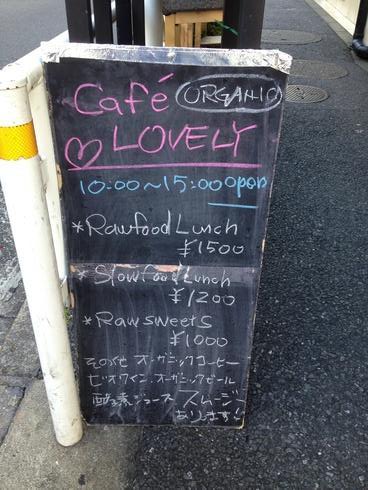 Café ORGANIC
LOVELY
10:00~15:00 open
*Rawfood Lunch
¥1500
*Slowfood Lunch
¥1200
*Rawsweets
¥1000
その他 オーガニックコーヒー
ビオワイン.オーガニックビール
酵素ジュース スムージー
あります!